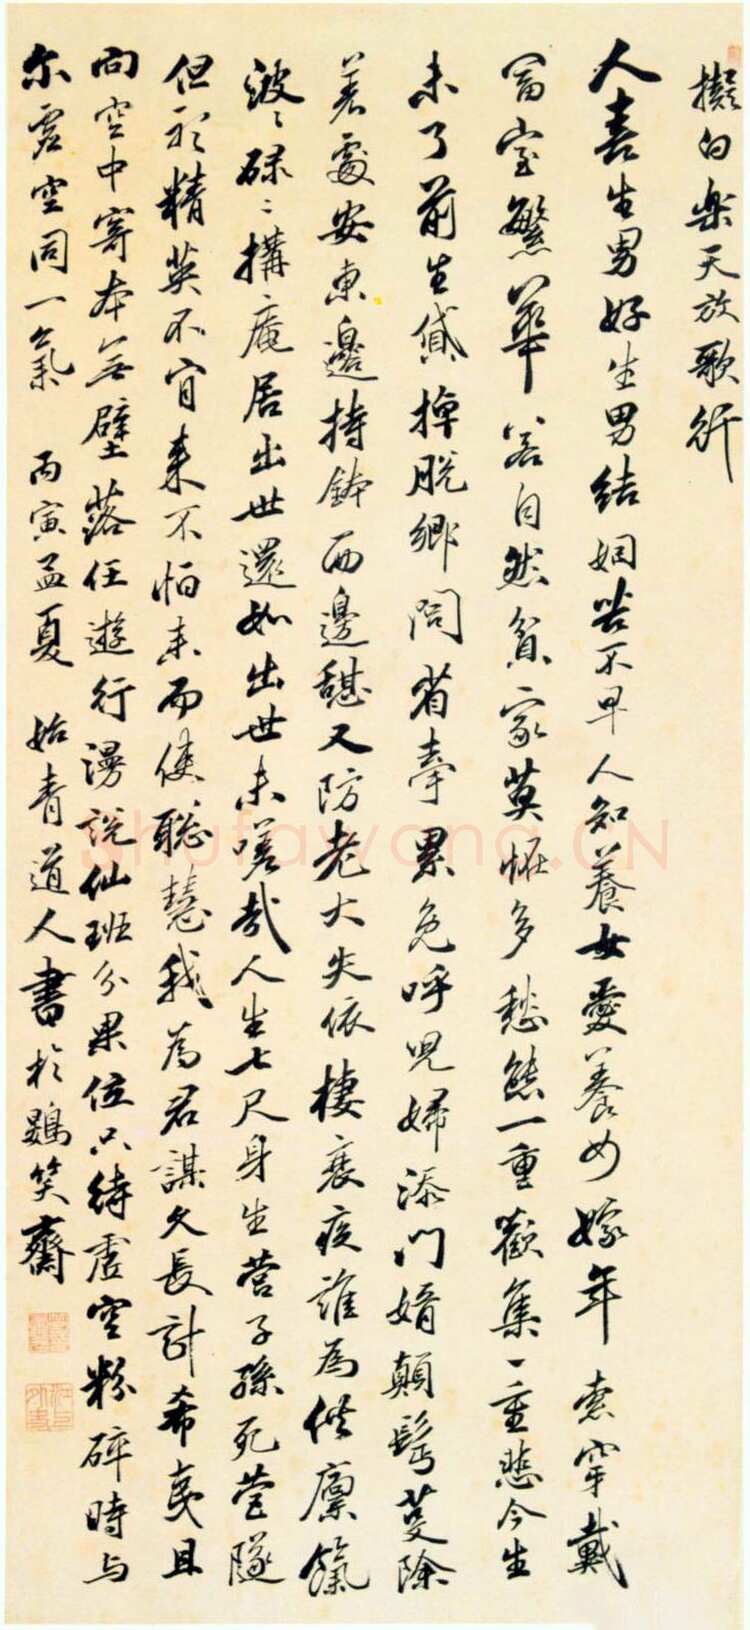 擬白樂天放歌行
人喜生男好生男結姻苦不早人知養女愛養女嫁年索穿戴
富室繁華若自然貧家莫恠多愁態一重歡集一重悲今生
未了前生貸掉脫鄉問省牽累免呼兒婦添門婿顛髡蔓除
著處安東邊持鉢西邊憇又防老大失依棲衰疾誰為供廩餼
波波碌碌構庵居出世還如出世未嗟哉人生七尺身生營子孫死營隧
但於精英不肯來不怕未而使聰慧我為君謀久長計希夷且
向空中寄本無壁落任遊行漫說仙班分果位只待虛空粉碎時与
尔虛空同一氣 丙寅孟夏 始青道人書於鷃笑齋
shufawang.CN